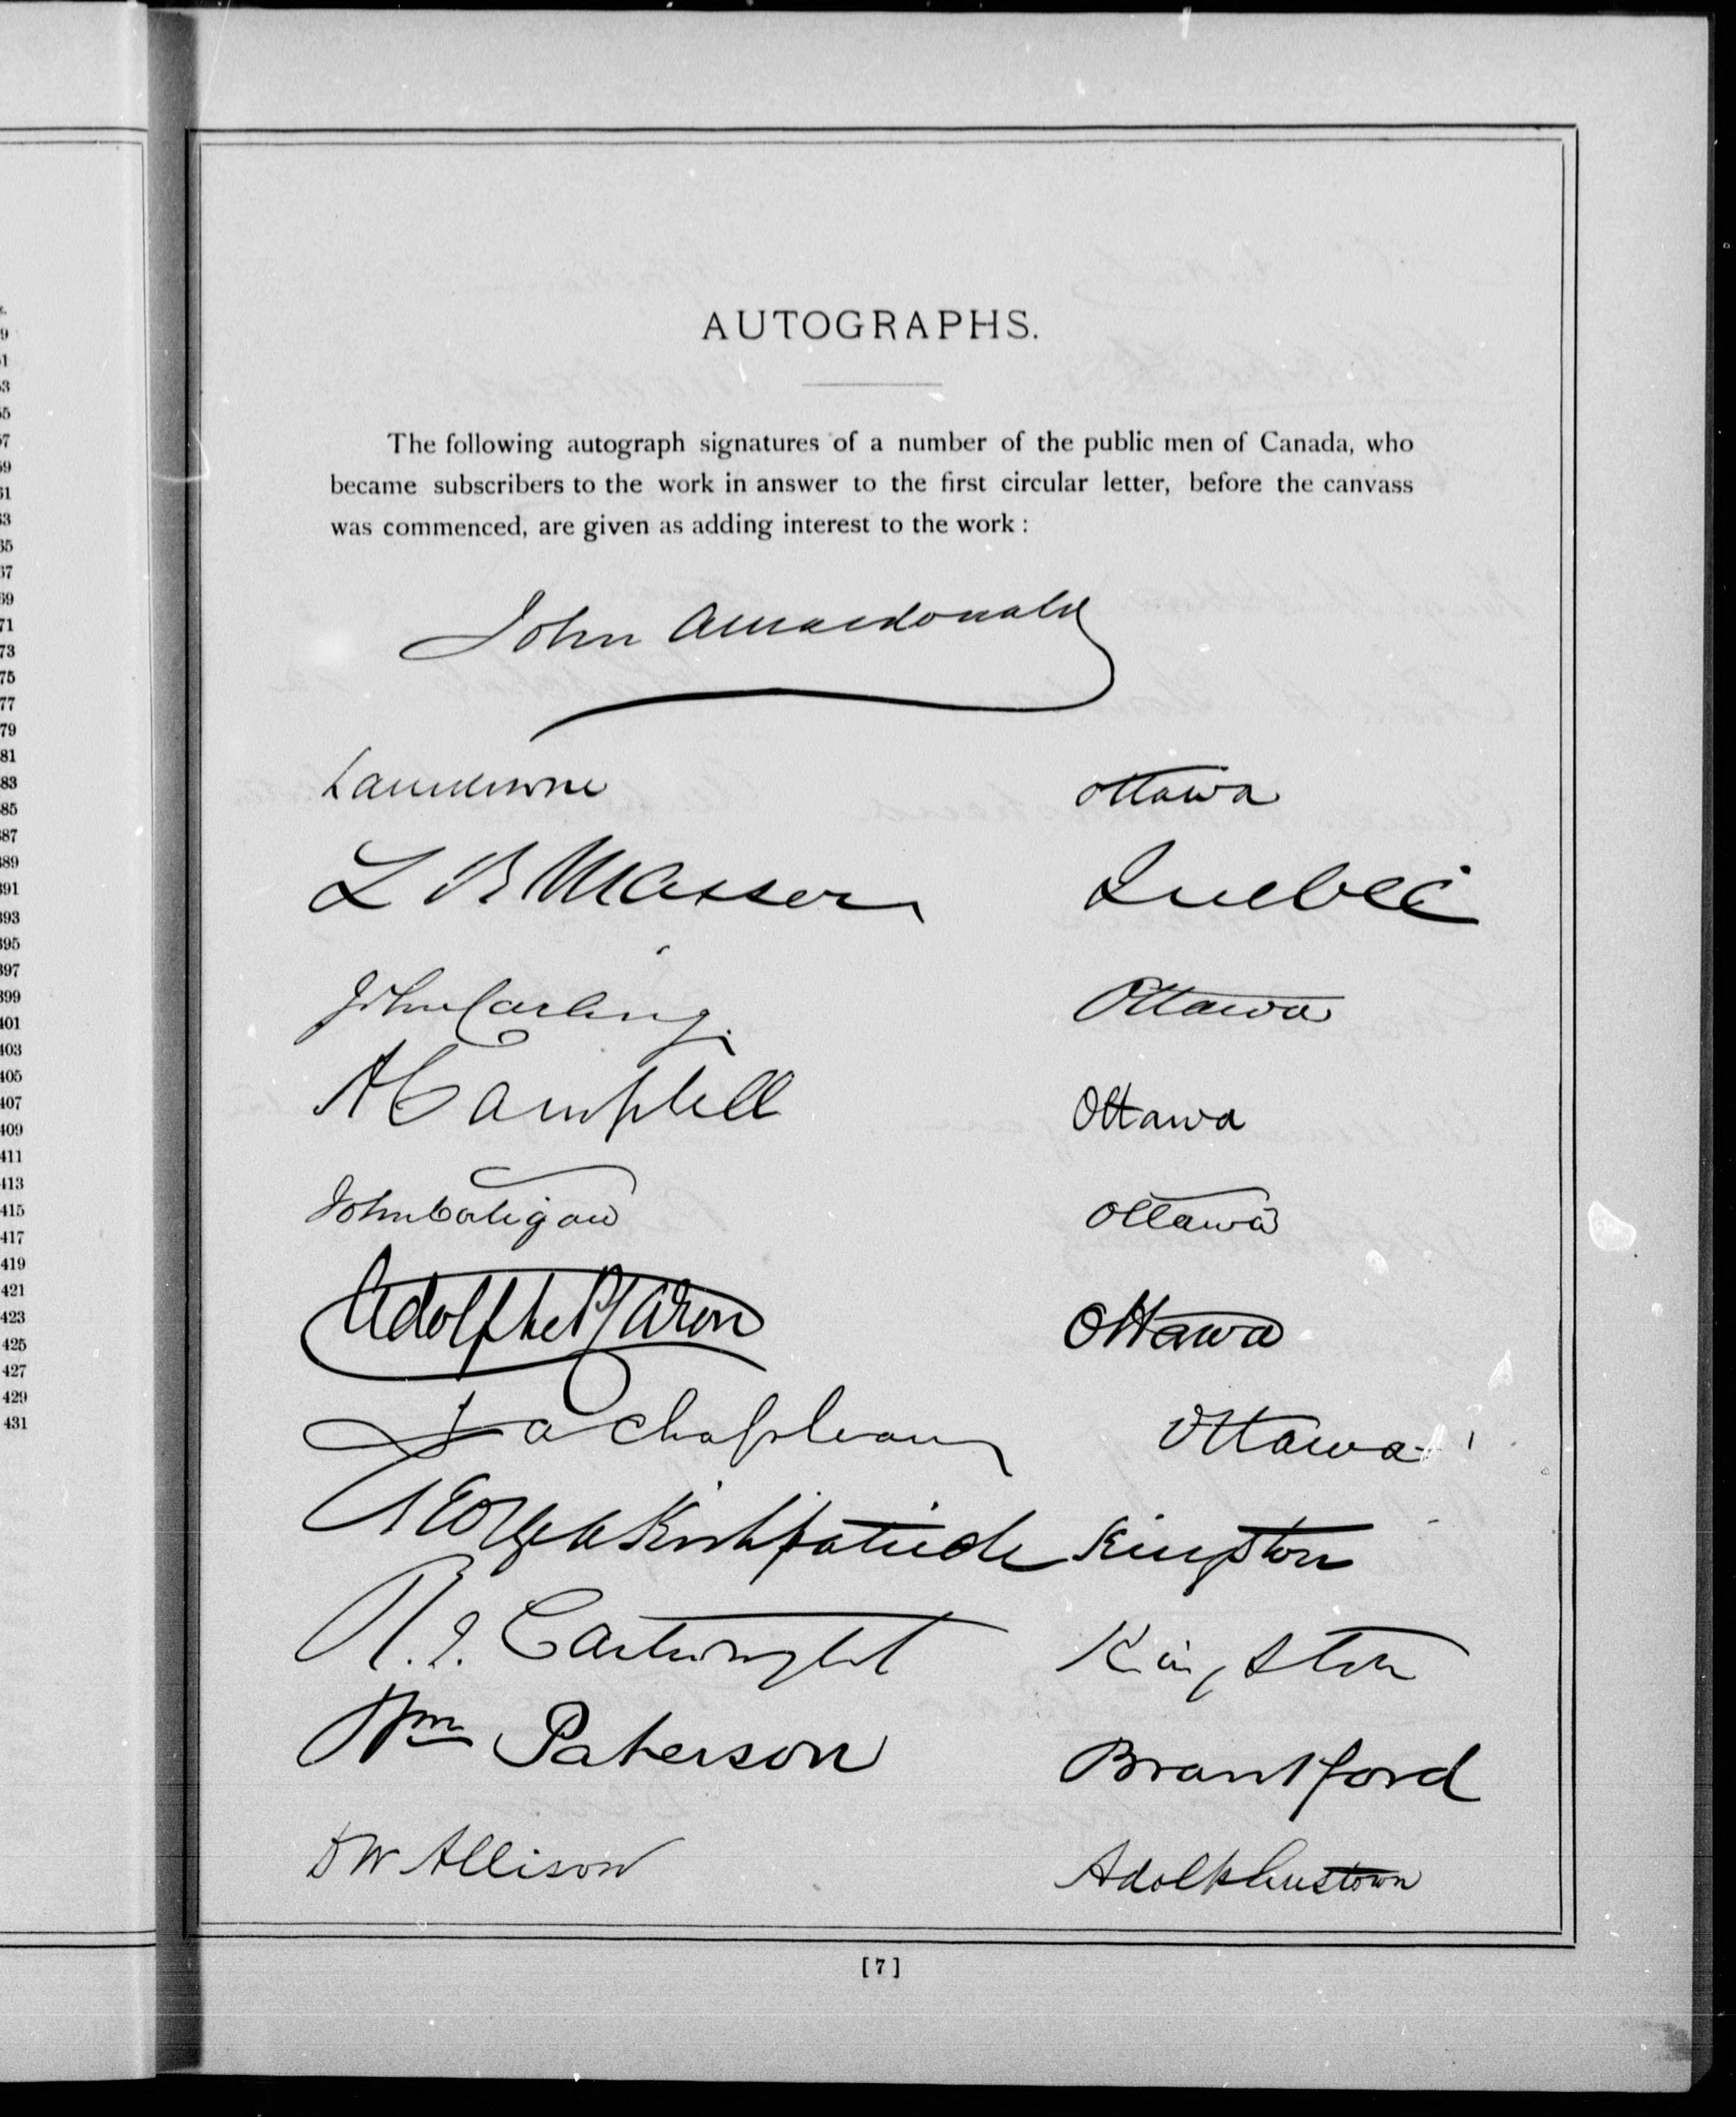 9
61
63
65
67
69
71
73
75
77
79
81
383
385
387
389
391
393
395
397
399
401
403
405
407
409
411
413
415
417
419
421
423
425
427
429
431
AUTOGRAPHS.
The following autograph signatures of a number of the public men of Canada, who
became subscribers to the work in answer to the first circular letter, before the canvass
was commenced, are given as adding interest to the work :
John A Macdonald
Lansdowne Ottawa
L R Masson Quebec
John Carling Ottawa
A Campbell Ottawa
John Costigan Ottawa
Adolphe P Caron Ottawa
J A Chapleau Ottawa
George A Kirkpatrick Kingston
R. J. Cartwright Kingston
Wm Paterson Brantford
D W Allison Adolphustown
[ 7 ]